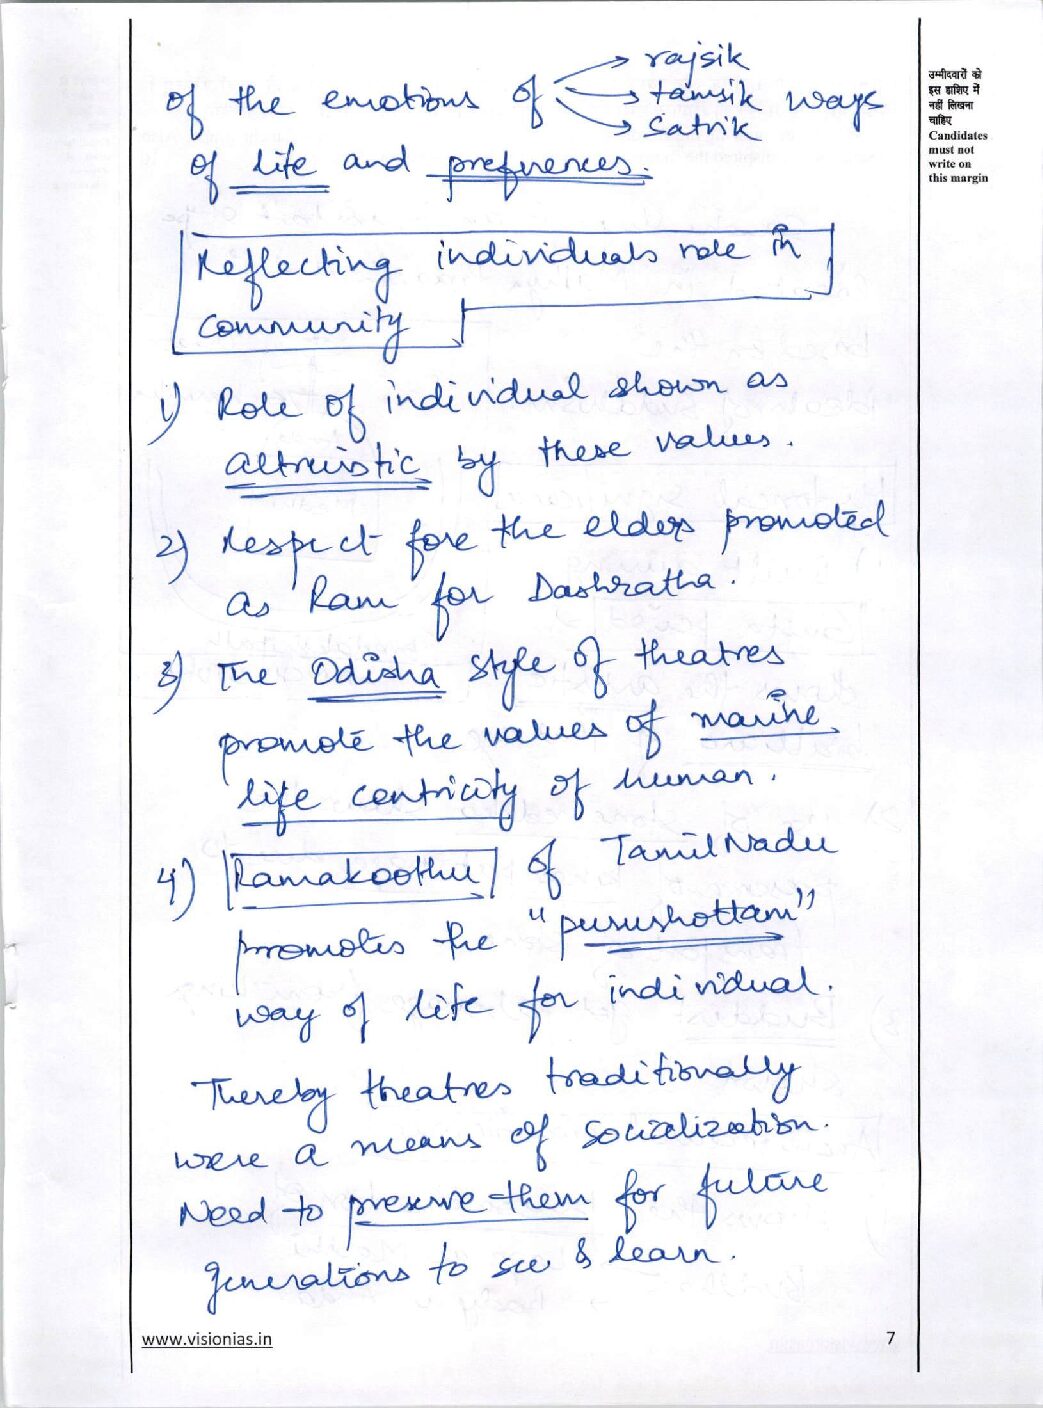 of the emotions of → rajsik
→ tamsik ways
→ Satvik
of life and preferences.
Reflecting individuals role in
community
1) Role of individual shown as
altruistic by these values.
2) Respect fore the elders promoted
as Ram for Dashratha.
3) The Odisha style of theatres
promote the values of marine
life centricity of human.
4) Ramakoothu of Tamil Nadu
promotes the "purushottam"
way of life for individual.
Thereby theatres traditionally
were a means of socialization.
Need to preserve them for future
generations to see & learn.
उम्मीदवारों को
इस हाशिए में
नहीं लिखना
चाहिए
Candidates
must not
write on
this margin
www.visionias.in
7